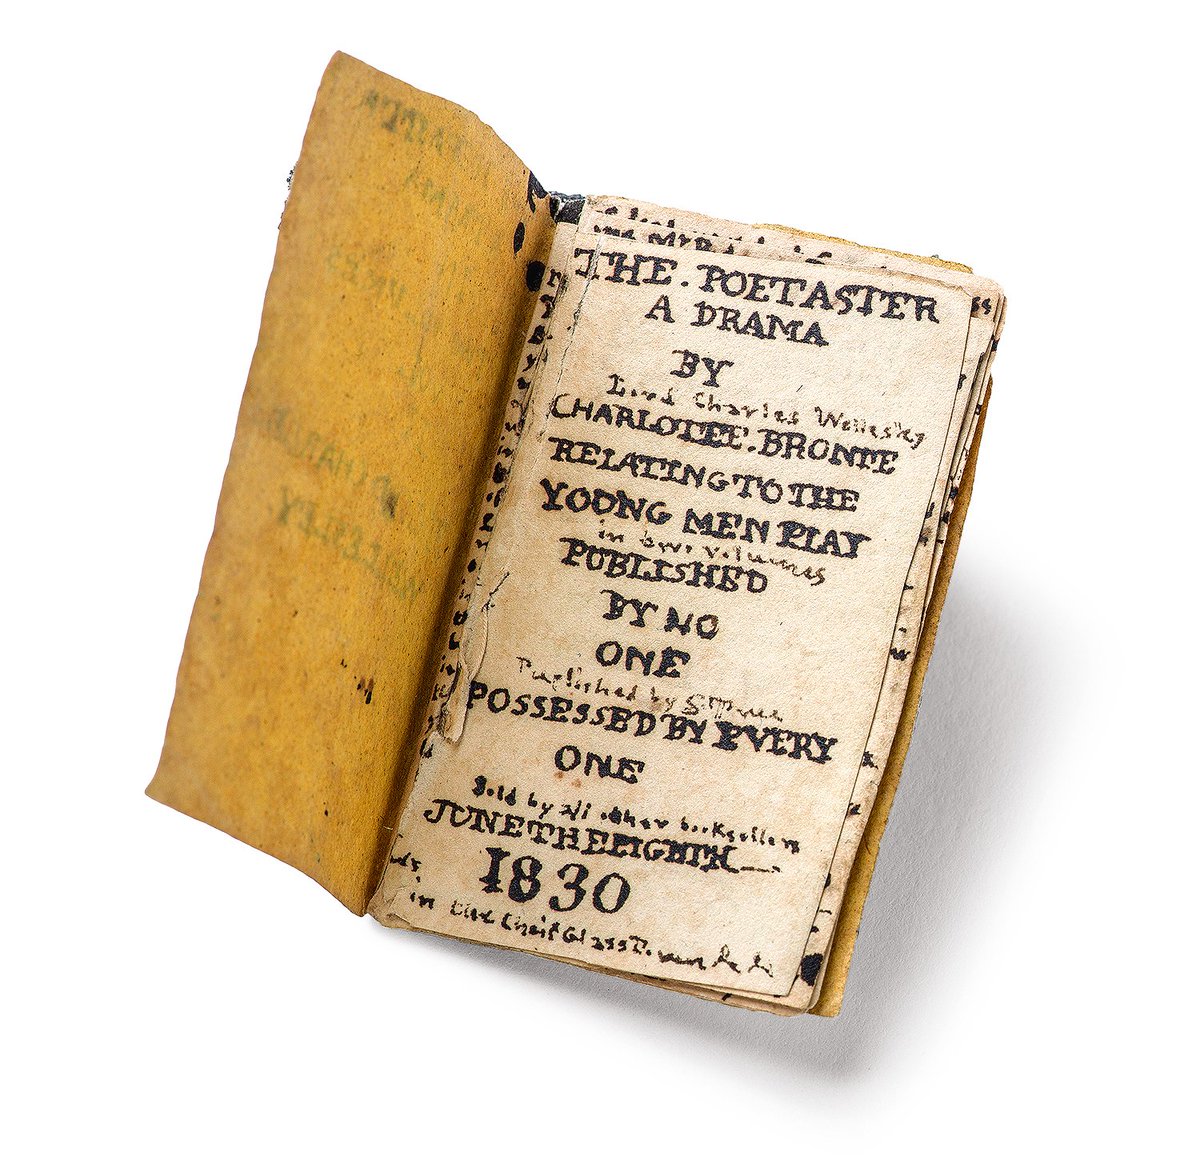 THE. POETASTER
A DRAMA
BY
Lord Charles Wellesley
CHARLOTTE. BRONTE
RELATING TO THE
YOUNG MEN PLAY
in two volumes
PUBLISHED
BY NO
ONE
Published by S Tree
POSSESSED BY EVERY
ONE
Sold by all other booksellers
JUNE THE EIGHTH
1830
in the Cheif Glass Town &c &c